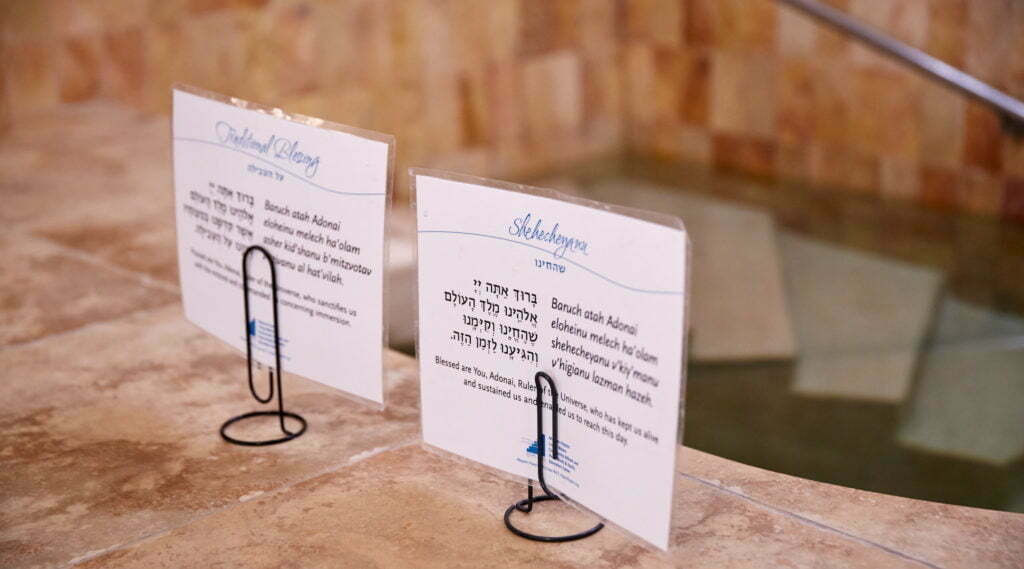 Traditional Blessing
על הטבילה
בָּרוּךְ אַתָּה יְיָ
אֱלֹהֵינוּ מֶלֶךְ הָעוֹלָם
אֲשֶׁר קִדְּשָׁנוּ בְּמִצְוֹתָיו
עַל הַטְּבִילָה.
Baruch atah Adonai
eloheinu melech ha'olam
asher kid'shanu b'mitzvotav
al hat'vilah.
the Universe, who sanctifies us
concerning immersion.
Shehecheyanu
שהחינו
בָּרוּךְ אַתָּה יְיָ
אֱלֹהֵינוּ מֶלֶךְ הָעוֹלָם
שֶׁהֶחֱיָנוּ וְקִיְּמָנוּ
וְהִגִּיעָנוּ לַזְּמַן הַזֶּה.
Baruch atah Adonai
eloheinu melech ha'olam
shehecheyanu v'kiy'manu
v'higianu lazman hazeh.
Blessed are You, Adonai, Ruler of the Universe, who has kept us alive
and sustained us and enabled us to reach this day.